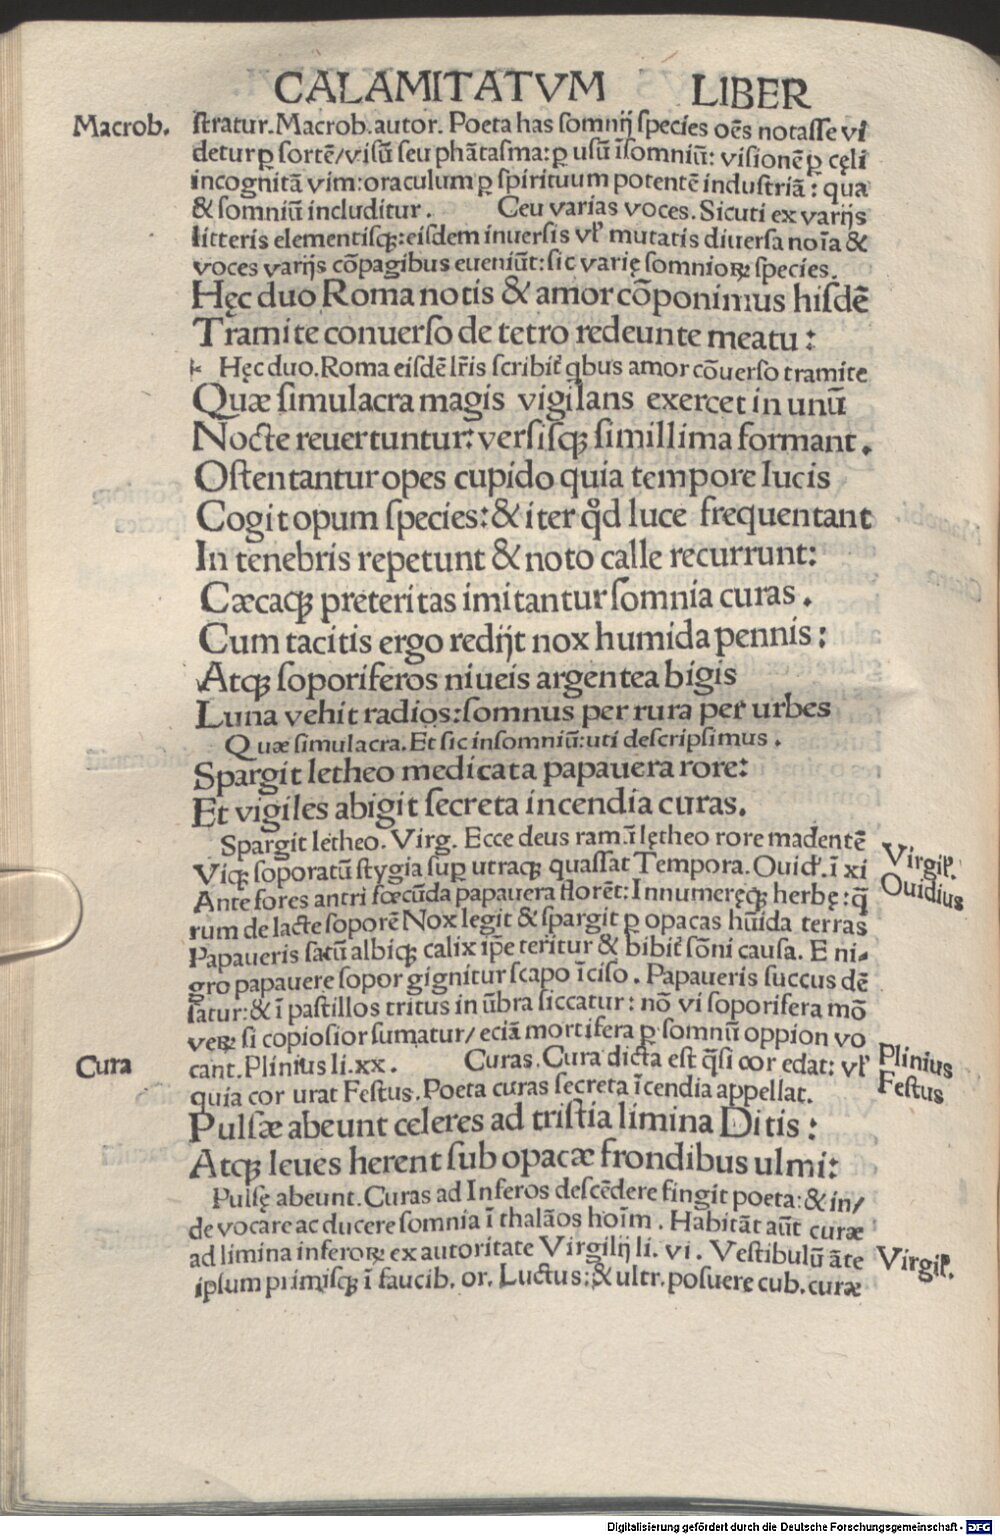 CALAMITATVM LIBER
Macrob. ſtratur. Macrob. autor. Poeta has ſomnij ſpecies oēs notaſſe vi
detur ꝑ ſortē/viſū ſeu phātaſma: ꝑ uſū īſomniū: viſionē ꝑ cęli
incognitā vim: oraculum ꝑ ſpirituum potentē induſtriā: qua
& ſomniū includitur. Ceu varias voces. Sicuti ex varijs
litteris elementiſqꝫ: eiſdem inuerſis vꝉ mutatis diuerſa noīa &
voces varijs cōpagibus eueniūt: ſic varię ſomnioꝝ ſpecies.
Hęc duo Roma notis & amor cōponimus hiſdē
Tramite conuerſo de tetro redeunte meatu:
Hęc duo. Roma eiſdē lr̄is ſcribit᷑ qbus amor cōuerſo tramite
Quæ ſimulacra magis vigilans exercet in unū
Nocte reuertuntur: verſiſqꝫ ſimillima formant.
Oſtentantur opes cupido quia tempore lucis
Cogit opum ſpecies: & iter qd̄ luce frequentant
In tenebris repetunt & noto calle recurrunt:
Cæcaqꝫ preteritas imitantur ſomnia curas.
Cum tacitis ergo redijt nox humida pennis:
Atqꝫ ſoporiferos niueis argentea bigis
Luna vehit radios: ſomnus per rura per urbes
Quæ ſimulacra. Et ſic inſomniū: uti deſcripſimus.
Spargit letheo medicata papauera rore:
Et vigiles abigit ſecreta incendia curas.
Spargit letheo. Virg. Ecce deus ram. ī lętheo rore madentē
Viqꝫ ſoporatū ſtygia ſuꝑ utraqꝫ quaſſat Tempora. Ouid. ī xi Virgiꝉ.
Ante fores antri fœcūda papauera florēt: Innumeręqꝫ herbę: q̄ Ouidius
rum de lacte ſoporē Nox legit & ſpargit ꝑ opacas hūida terras
Papaueris ſatū albiqꝫ calix ip̄e teritur & bibit᷑ ſōni cauſa. E ni-
gro papauere ſopor gignitur ſcapo īciſo. Papaueris ſuccus dē
ſatur: & ī paſtillos tritus in ūbra ſiccatur: nō vi ſoporifera mō
veꝝ ſi copioſior ſumatur/ eciā mortifera ꝑ ſomnū oppion vo
Cura cant. Plinius li. xx. Curas. Cura dicta eſt q̄ſi cor edat: vꝉ Plinius
quia cor urat Feſtus. Poeta curas ſecreta īcendia appellat. Feſtus
Pulſæ abeunt celeres ad triſtia limina Ditis:
Atqꝫ leues herent ſub opacæ frondibus ulmi:
Pulſę abeunt. Curas ad Inferos deſcēdere fingit poeta: & in/
de vocare ac ducere ſomnia ī thalāos hoīm. Habitāt aūt curæ
ad limina inferoꝝ ex autoritate Virgilij li. vi. Veſtibulū āte Virgiꝉ.
ipſum primiſqꝫ ī faucib. or. Luctus: & ultr. poſuere cub. curæ
Digitalisierung gefördert durch die Deutsche Forschungsgemeinschaft - DFG